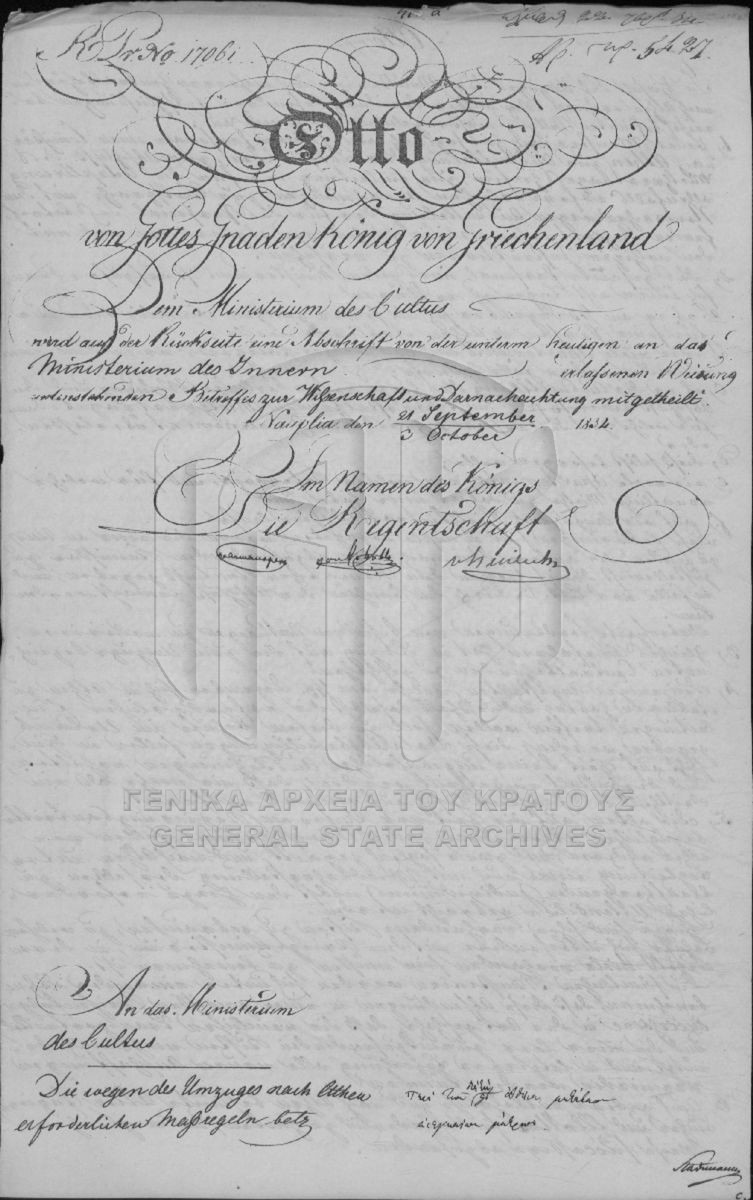 R. Pr. No. 17061.
Αρ. πρ. 5427.
Otto
von Gottes Gnaden König von Griechenland
Dem Ministerium des Cultus
wird auf der Rückseite eine Abschrift von der unterm heutigen an das
Ministerium des Innern erlassenen Weisung
nebenstehenden Betreffes zur Wissenschaft und Darnachachtung mitgetheilt.
Nauplia den 21 September / 3 October 1834.
Im Namen des Königs
Die Regentschaft
ΓΕΝΙΚΑ ΑΡΧΕΙΑ ΤΟΥ ΚΡΑΤΟΥΣ
GENERAL STATE ARCHIVES
An das Ministerium
des Cultus
Die wegen des Umzuges nach Athen
erforderlichen Maßregeln betr.